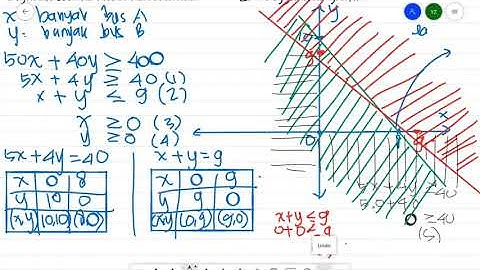 x: banyak bus A
y: banyak bus B
50x + 40y ≥ 400
5x + 4y ≥ 40 (1)
x + y ≤ 9 (2)
x ≥ 0 (3)
y ≥ 0 (4)
5x + 4y = 40
x 0 8
y 10 0
(x,y) (0,10) (8,0)
x + y = 9
x 0 9
y 9 0
(x,y) (0,9) (9,0)
y
10
9
0
8
9
x
x+y ≤ 9
0+0 ≤ 9
5x + 4y ≥ 40
0 ≥ 40
(S)